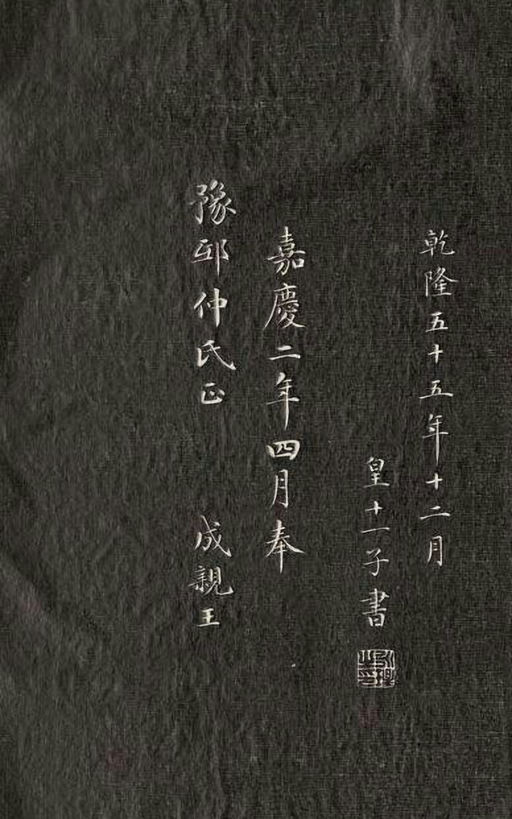 乾隆五十五年十二月
皇十一子書
嘉慶二年四月奉
仲氏正
成親王